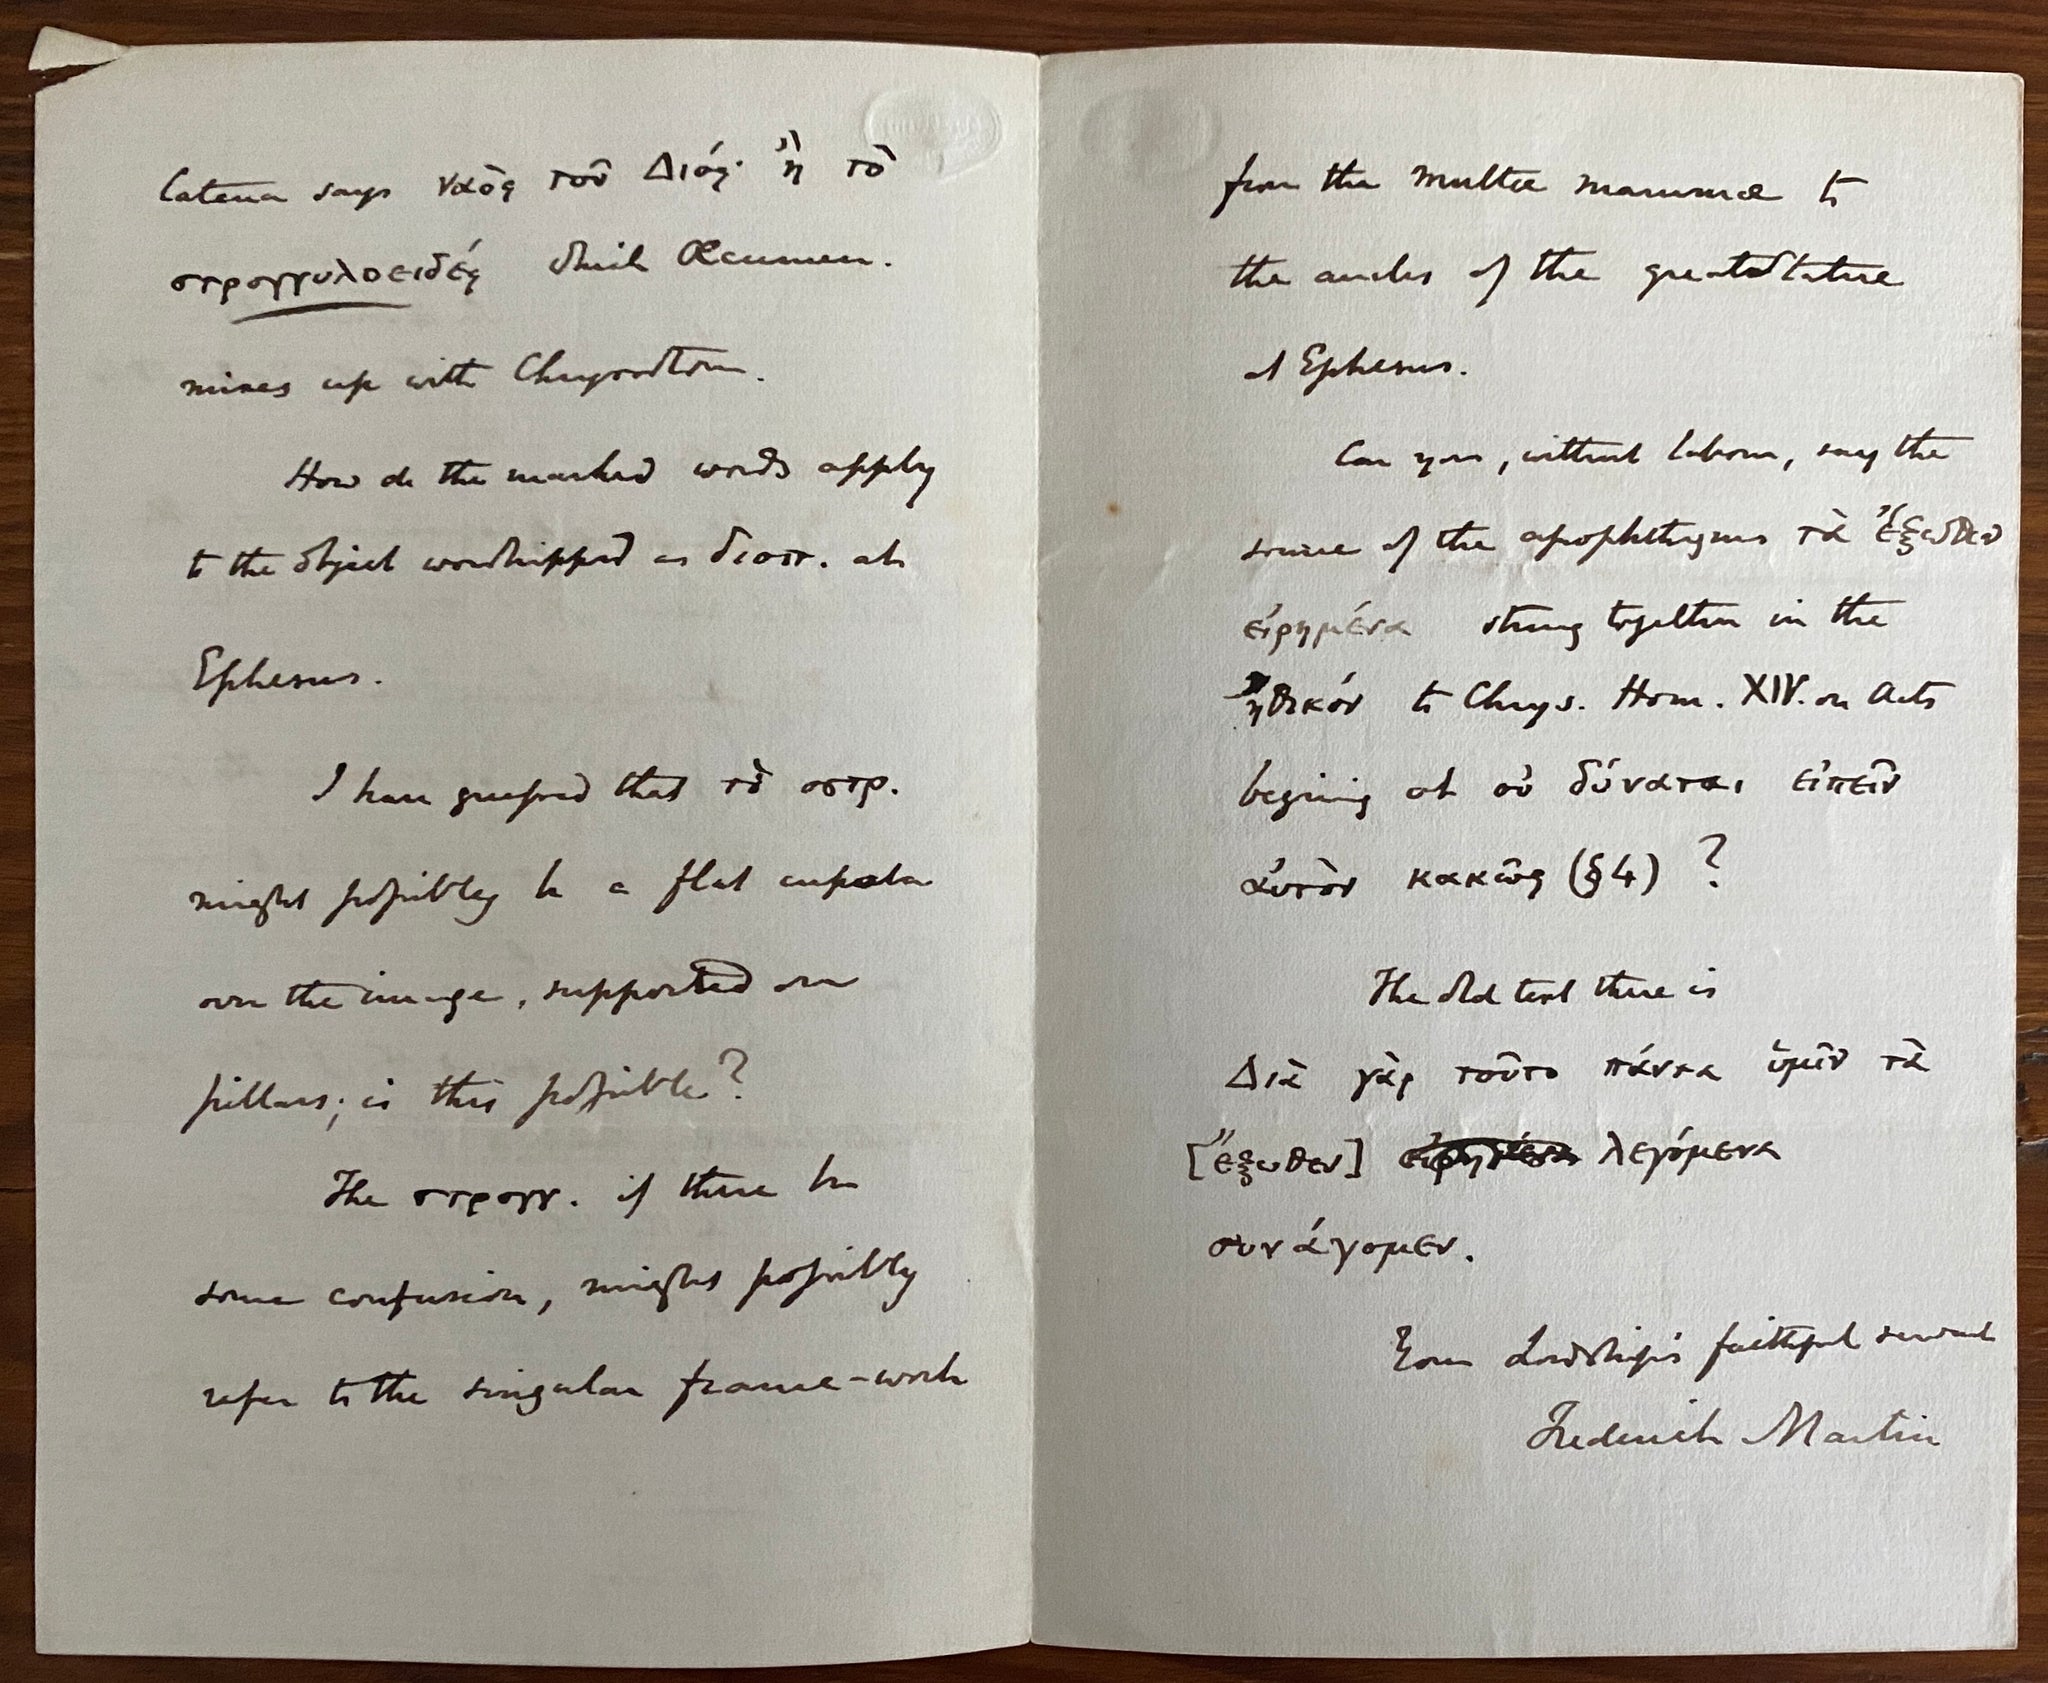 Catena says ναὸς τοῦ Διός· ἢ τὸ
στρογγυλοειδές which Œcumen.
mixes up with Chrysostom.
How do the marked words apply
to the object worshipped as διοπ. at
Ephesus.
I have guessed that τὸ οστρ.
might possibly be a flat cupola
over the image, supported on
pillars; is this possible?
The στρογγ. if there be
some confusion, might possibly
refer to the singular frame-work
from the multæ mammæ to
the ancles of the great statue
at Ephesus.
Can you, without labour, say the
source of the apophthegms τὰ ἔξωθεν
εἰρημένα strung together in the
ἠθικόν to Chrys. Hom. XIV. on Acts
begining at οὐ δύναται εἰπεῖν
αὐτὸν κακῶς (§4)?
The old text there is
Διὰ γὰρ τοῦτο πάντα ὑμῖν τὰ
[ἔξωθεν] εἰρημένα λεγόμενα
συνάγομεν.
Your Lordship's faithful servant
Frederick Martin